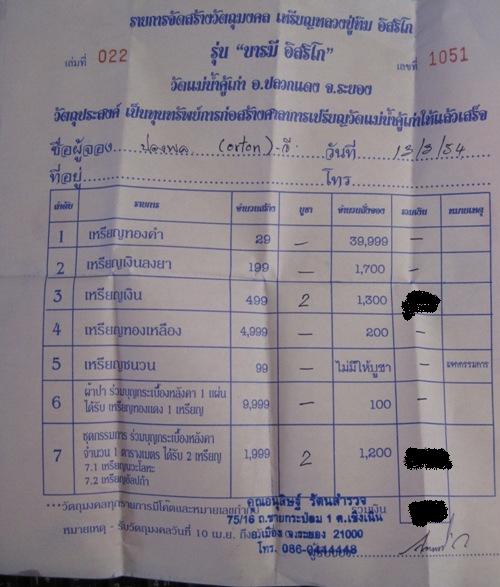 รายการจัดสร้างวัตถุมงคล เหรียญหลวงปู่ทิม อิสริโก
เล่มที่ 022 รุ่น “บารมี อิสริโก” เลขที่ 1051
วัดแม่น้ำคู้เก่า อ.ปลวกแดง จ.ระยอง
วัตถุประสงค์ เป็นทุนทรัพย์การก่อสร้างศาลาการเปรียญวัดแม่น้ำคู้เก่าให้แล้วเสร็จ
ชื่อผู้จอง (orton) วันที่ 13/3/54
ที่อยู่ โทร
ลำดับ รายการ จำนวนสร้าง บูชา รวมเงิน หมายเหตุ
1 เหรียญทองคำ 29 — 39,999 —
2 เหรียญเงินลงยา 199 — 1,700 —
3 เหรียญเงิน 499 2 1,300
4 เหรียญทองเหลือง 4,999 — 200 —
5 เหรียญชนวน 99 — ไม่มีให้บูชา แจกกรรมการ
6 ผ้าป่า ร่วมบุญกระเบื้องหลังคา 1 แผ่น
ได้รับ เหรียญทองแดง 1 เหรียญ 9,999 — 100 —
ชุดกรรมการ ร่วมบุญกระเบื้องหลังคา
7 จำนวน 1 ตารางเมตร ได้รับ 2 เหรียญ 1,999 2 1,200
7.1 เหรียญนวะโลหะ
7.2 เหรียญอัลปาก้า
***วัตถุมงคลทุกรายการมีโค๊ตและหมายเลขกำกับ รวมเงิน
คุณอนุสิษฐ์ รัตนสำรวจ
75/16 ถ.ราษฎร์บำรุง ซ.1 ต.เชิงเนิน
หมายเหตุ - รับวัตถุมงคลวันที่ 10 เม.ย.
อ.เมือง จ.ระยอง 21000
โทร. 086-0444448